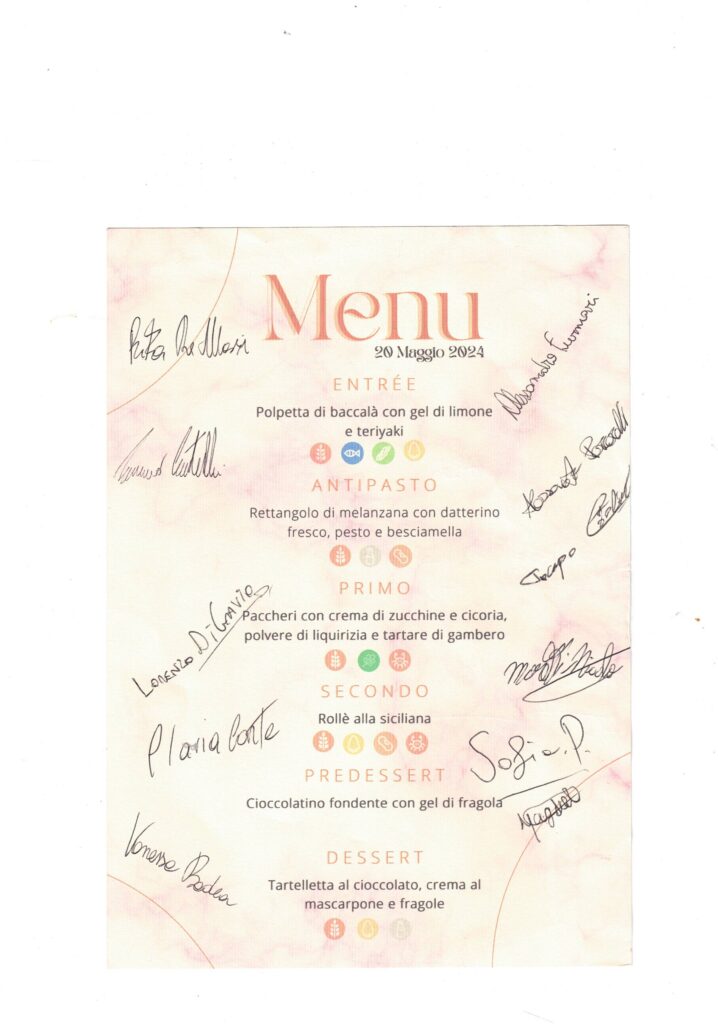 Menu
20 Maggio 2024
ENTRÉE
Polpetta di baccalà con gel di limone
e teriyaki
ANTIPASTO
Rettangolo di melanzana con datterino
fresco, pesto e besciamella
PRIMO
Paccheri con crema di zucchine e cicoria,
polvere di liquirizia e tartare di gambero
SECONDO
Rollè alla siciliana
PREDESSERT
Cioccolatino fondente con gel di fragola
DESSERT
Tartelletta al cioccolato, crema al
mascarpone e fragole
Rita
Lorenzo Di Gravio
Ilaria Conte
Vanessa Badea
Alessandro
Jacopo
Sofia.P.